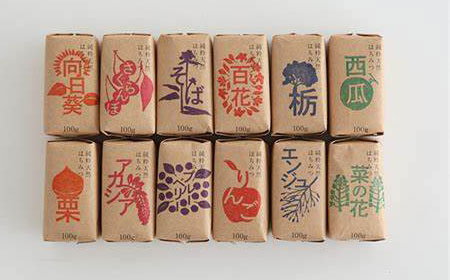 純粋天然
はちみつ
向日葵
100g
純粋天然
はちみつ
さくらんぼ
100g
純粋天然
はちみつ
そば
100g
純粋天然
はちみつ
百花
100g
純粋天然
はちみつ
栃
100g
純粋天然
はちみつ
西瓜
100g
純粋天然
はちみつ
栗
100g
純粋天然
はちみつ
アカシア
100g
純粋天然
はちみつ
ブルーベリー
100g
純粋天然
はちみつ
りんご
100g
純粋天然
はちみつ
エンジュ
100g
純粋天然
はちみつ
菜の花
100g